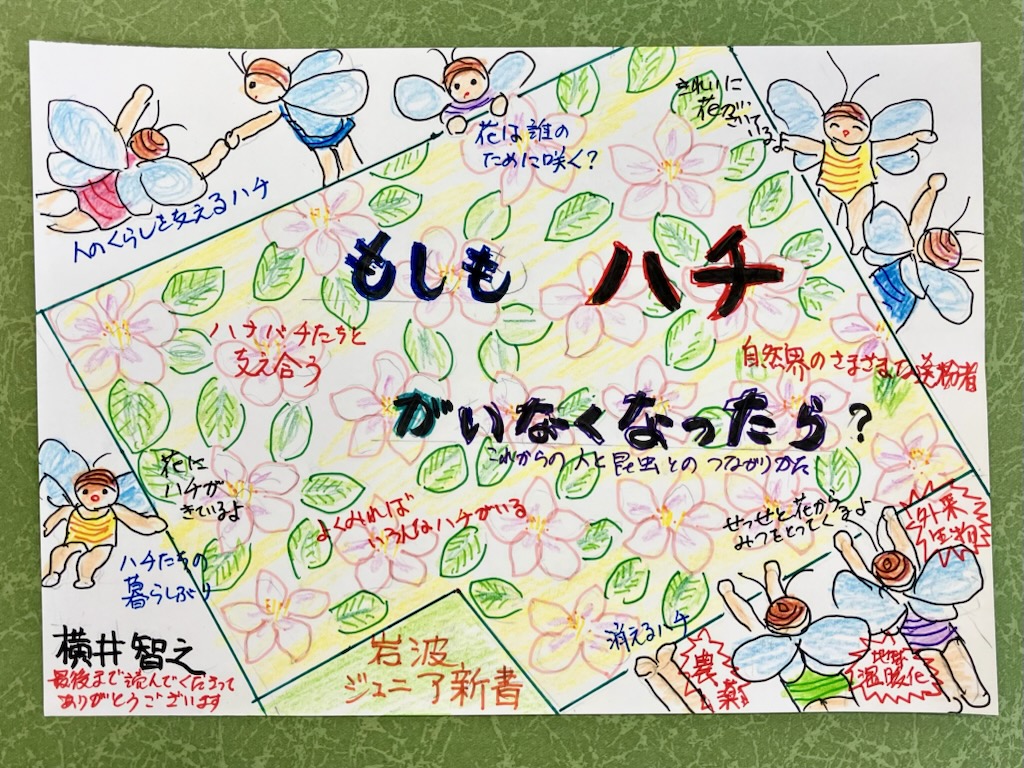 きれいに
花が
さいているよ
花は誰の
ために咲く?
人のくらしを支えるハチ
もしも ハチ
ハナバチたちと
支え合う
自然界のさまざまな送粉者
がいなくなったら?
これからの人と昆虫とのつながりかた
花に
ハチが
きているよ
よくみれば
いろんなハチがいる
せっせと花から
みつをとってくるよ
外来
生物
ハチたちの
暮らしぶり
消えるハチ
横井智之
岩波
ジュニア新書
農
薬
地球
温暖化
最後まで読んでくださって
ありがとうございます